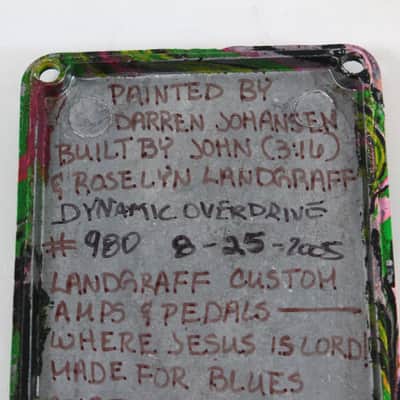 PAINTED BY
DARREN JOHANSEN
BUILT BY JOHN (3:16)
& ROSELYN LANDGRAFF
DYNAMIC OVERDRIVE
# 980 8-25-2005
LANDGRAFF CUSTOM
AMPS & PEDALS —
WHERE JESUS IS LORD!
MADE FOR BLUES